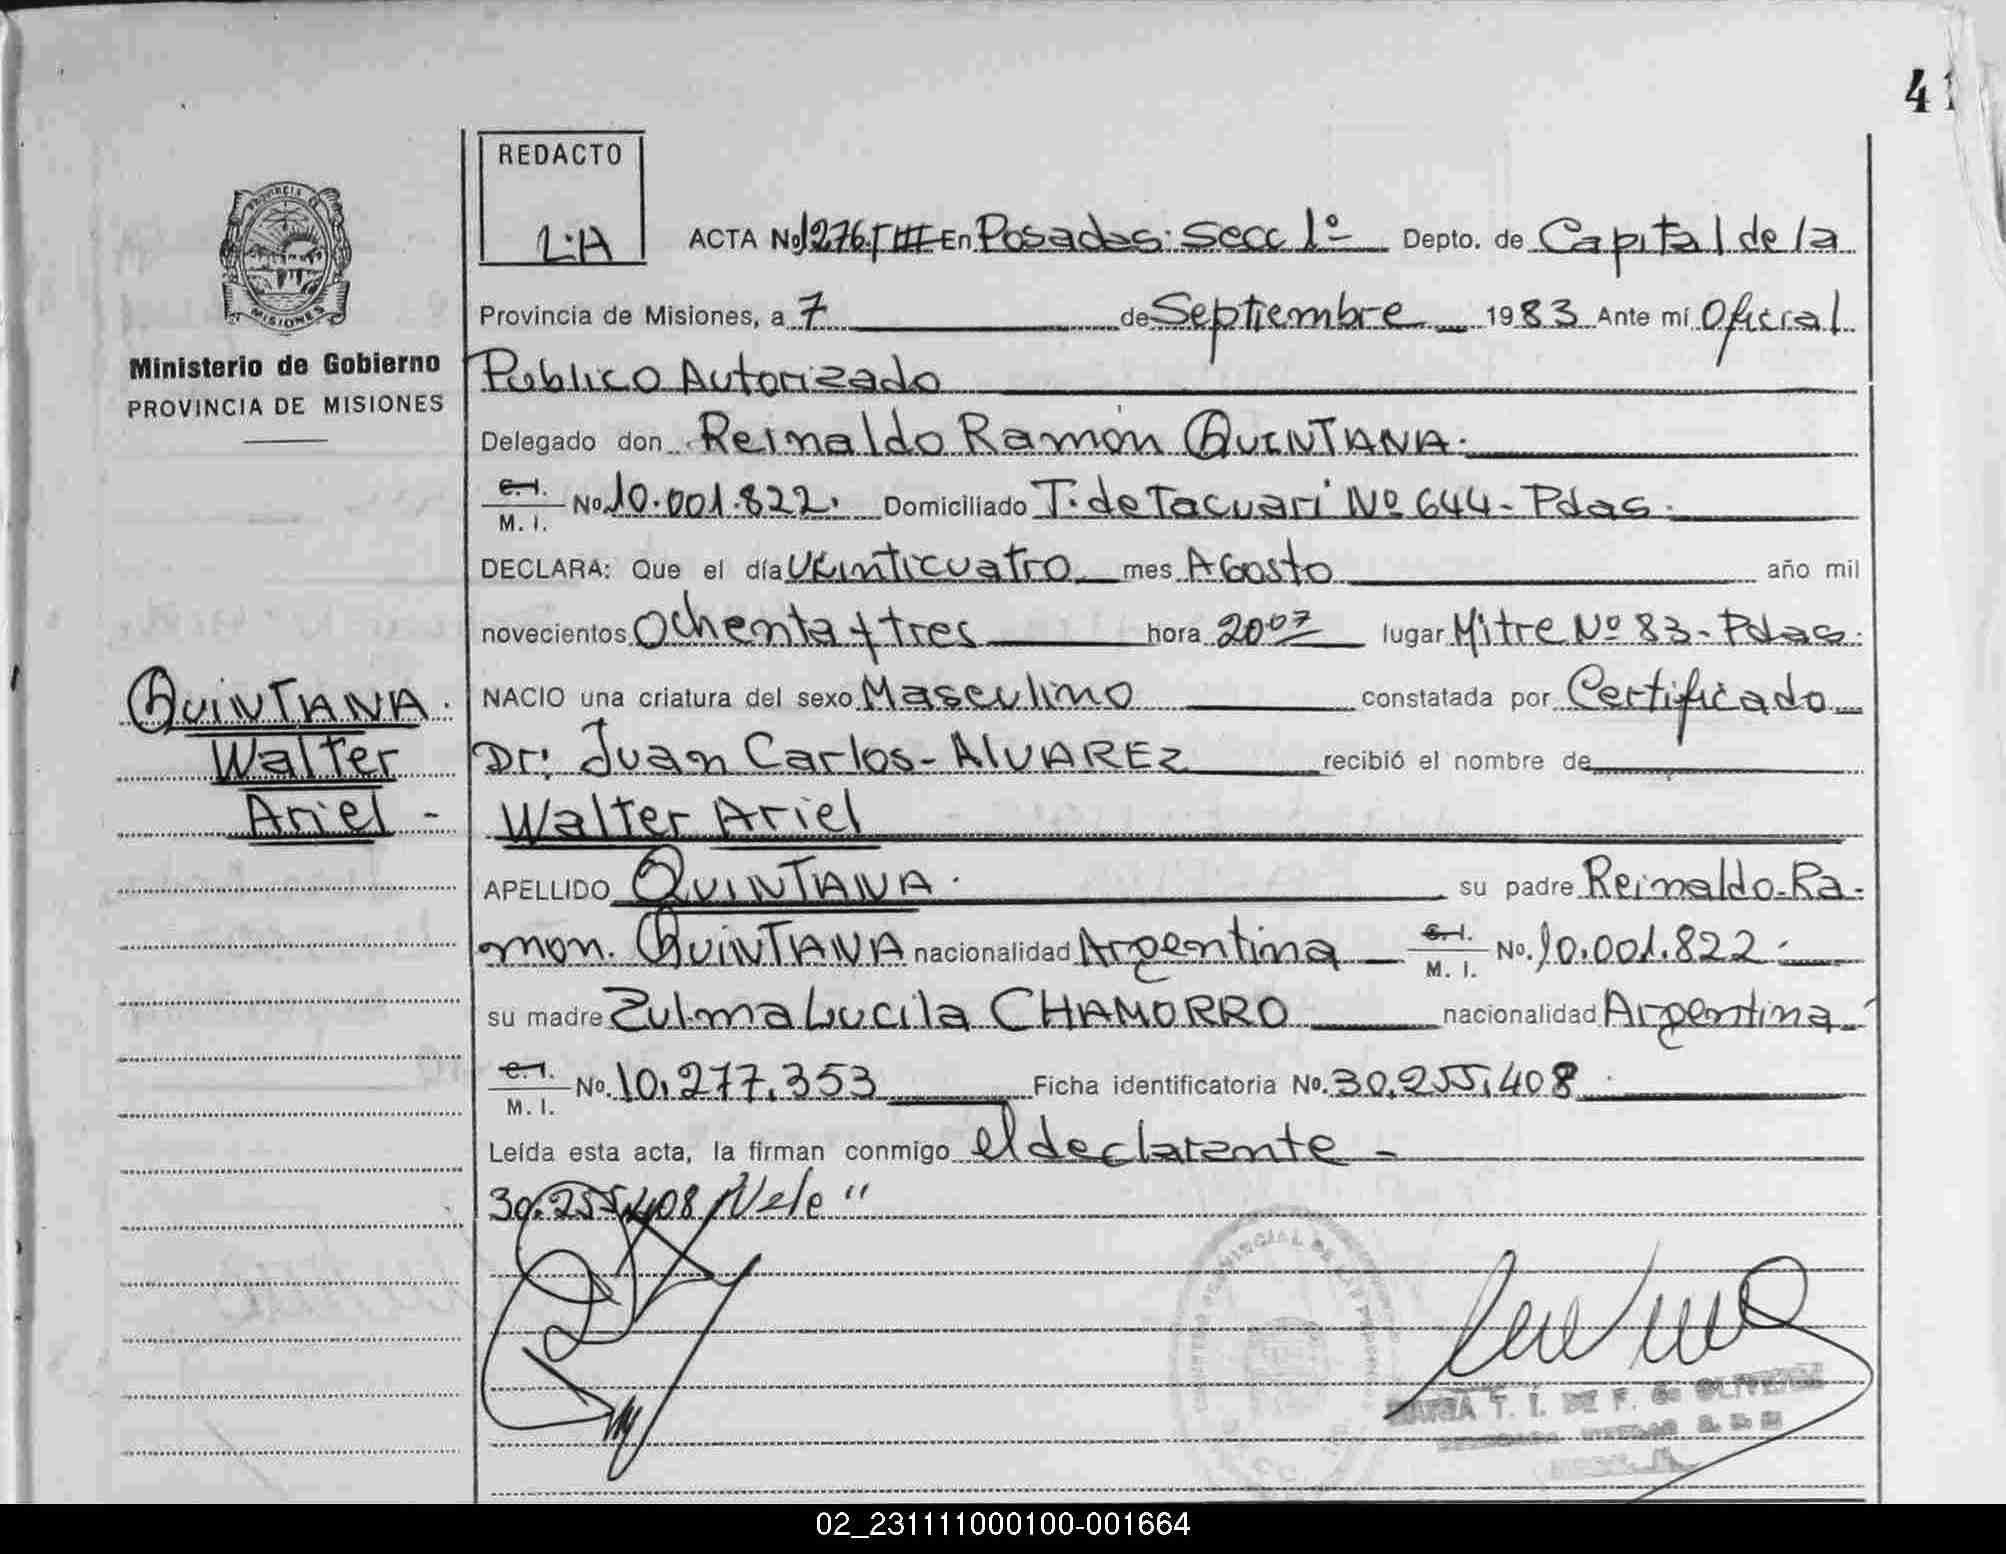 4
REDACTO
L.A
ACTA No 1276 T III En Posadas: Secc 1º Depto. de Capital de la
Provincia de Misiones, a 7 de Septiembre 1983 Ante mí Oficial
Público Autorizado
Delegado don Reinaldo Ramón QUINTANA.
C. I.
M. I. No 10.001.822. Domiciliado T. de Tacuarí Nº 644- Pdas.
DECLARA: Que el día Veinticuatro mes Agosto año mil
novecientos Ochenta y tres hora 20 07 lugar Mitre Nº 83- Pdas.
NACIO una criatura del sexo Masculino constatada por Certificado
Dr: Juan Carlos- ALVAREZ recibió el nombre de
Walter Ariel
APELLIDO QUINTANA. su padre Reinaldo-Ra-
mon. QUINTANA nacionalidad Argentina C. I.
M. I. No. 10.001.822.-
su madre Zulma Lucila CHAMORRO nacionalidad Argentina
C. I.
M. I. No. 10.277.353 Ficha identificatoria No. 30.255.408
Leída esta acta, la firman conmigo el declarante -
30.255.408 /Vale "
PROVINCIA D
MISIONES
Ministerio de Gobierno
PROVINCIA DE MISIONES
QUINTANA.
Walter
Ariel -
MARIA T. I. DE F. de OLIVERA
02_231111000100-001664